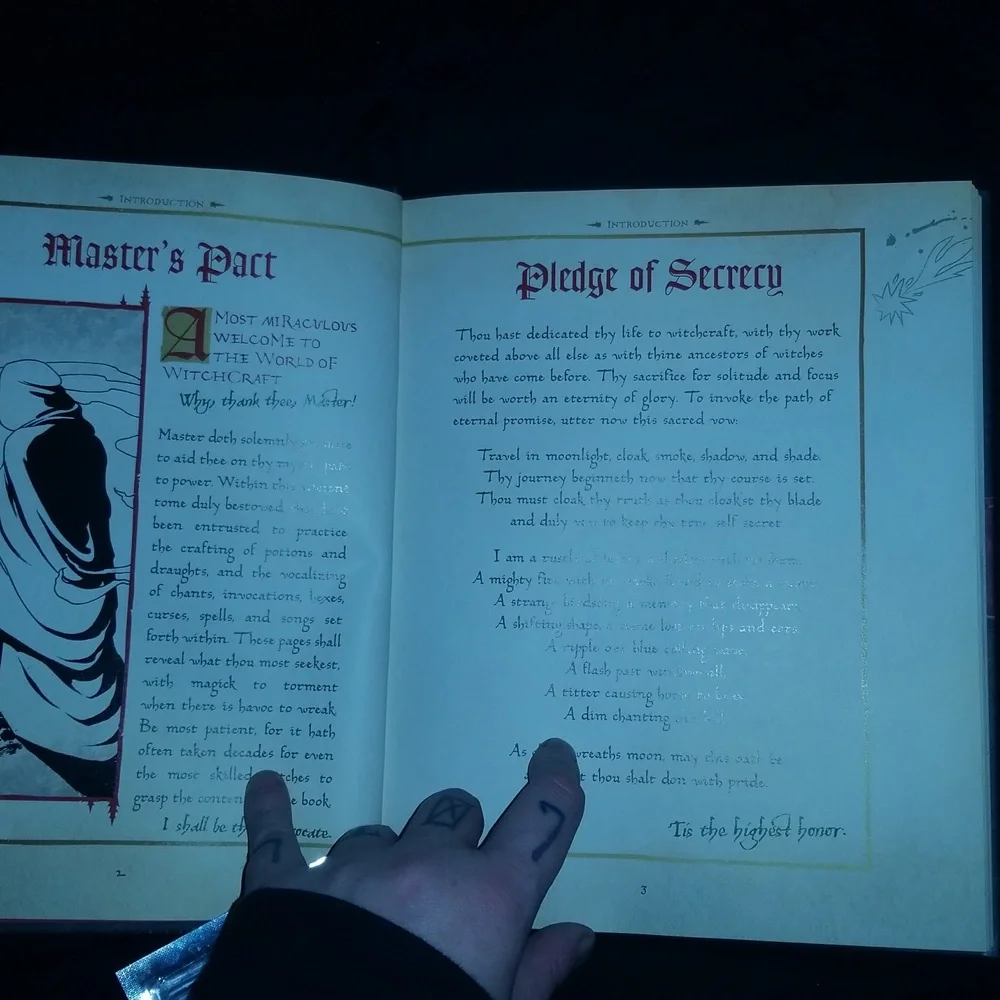 INTRODUCTION
Master's Pact
A MOST MIRACULOUS
WELCOME TO
THE WORLD OF
WITCHCRAFT
Why, thank thee, Master!
Master doth solemnly
to aid thee on thy
to power. Within this
tome duly bestowed
been entrusted to practice
the crafting of potions and
draughts, and the vocalizing
of chants, invocations, hexes,
curses, spells, and songs set
forth within. These pages shall
reveal what thou most seekest,
with magick to torment
when there is havoc to wreak.
Be most patient, for it hath
often taken decades for even
the most skilled to
grasp the book.
I shall be
2
INTRODUCTION
Pledge of Secrecy
Thou hast dedicated thy life to witchcraft, with thy work
coveted above all else as with thine ancestors of witches
who have come before. Thy sacrifice for solitude and focus
will be worth an eternity of glory. To invoke the path of
eternal promise, utter now this sacred vow:
Travel in moonlight, cloak, smoke, shadow, and shade.
Thy journey beginneth now that thy course is set.
Thou must cloak thy truth as thou cloakst thy blade
and duly vow to keep thy true self secret
I am a
A mighty
A strange a memory that disappears,
A shifting shape, lips and ears,
A ripple on blue
A flash past
A titter causing
A dim chanting
As wreaths moon, may this oath be
thou shalt don with pride.
'Tis the highest honor.
3